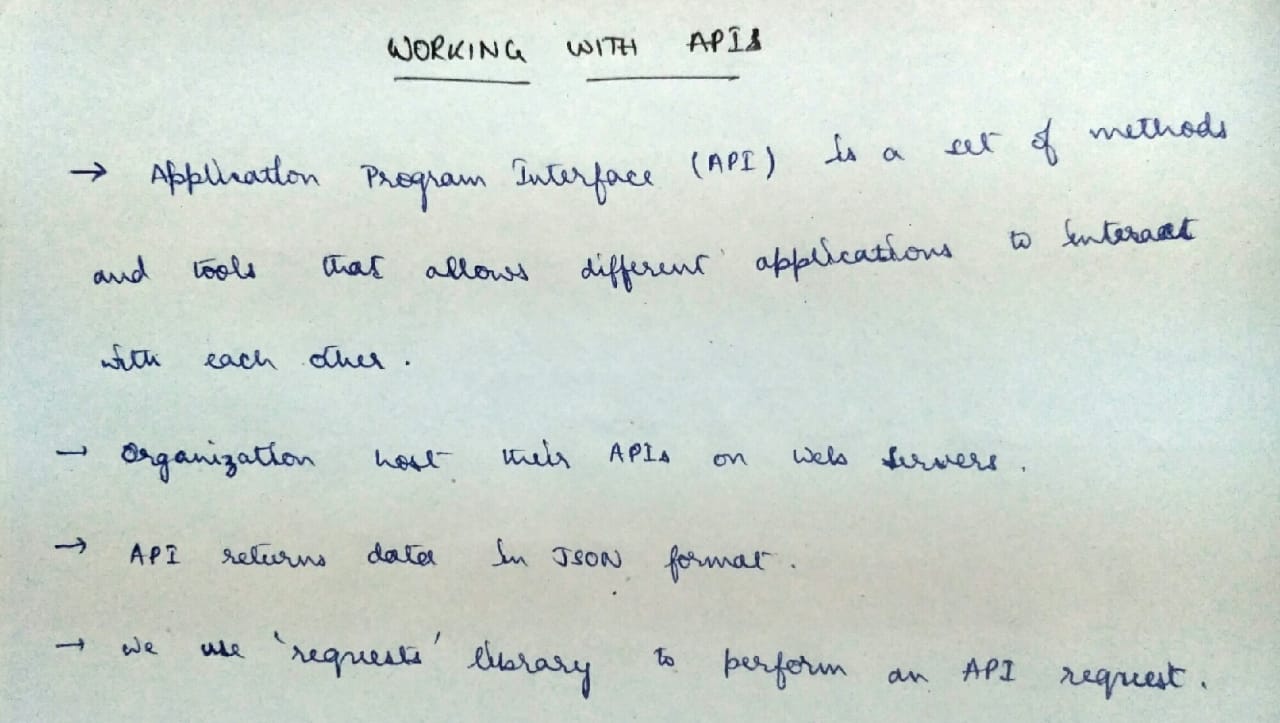 WORKING WITH APIs
→ Application Program Interface (API) is a set of methods
and tools that allows different applications to interact
with each other.
→ Organization host their APIs on web servers.
→ API returns data in JSON format.
→ We use 'requests' library to perform an API request.